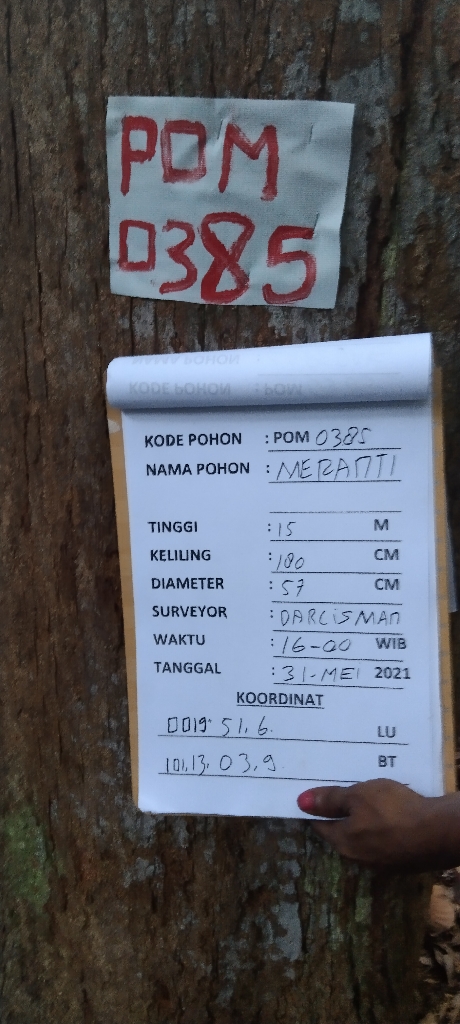 POM
0385
KODE POHON : POM 0385
NAMA POHON : MERANTI
TINGGI : 15 M
KELILING : 180 CM
DIAMETER : 57 CM
SURVEYOR : DARCISMAN
WAKTU : 16-00 WIB
TANGGAL : 31-MEI 2021
KOORDINAT
0019° 51.6. LU
101.13. 03.9. BT